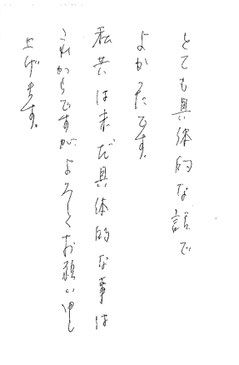 とても具体的な話で
よかったです。
私共は未だ具体的な事は
これからですが、よろしくお願い申し
上げます。